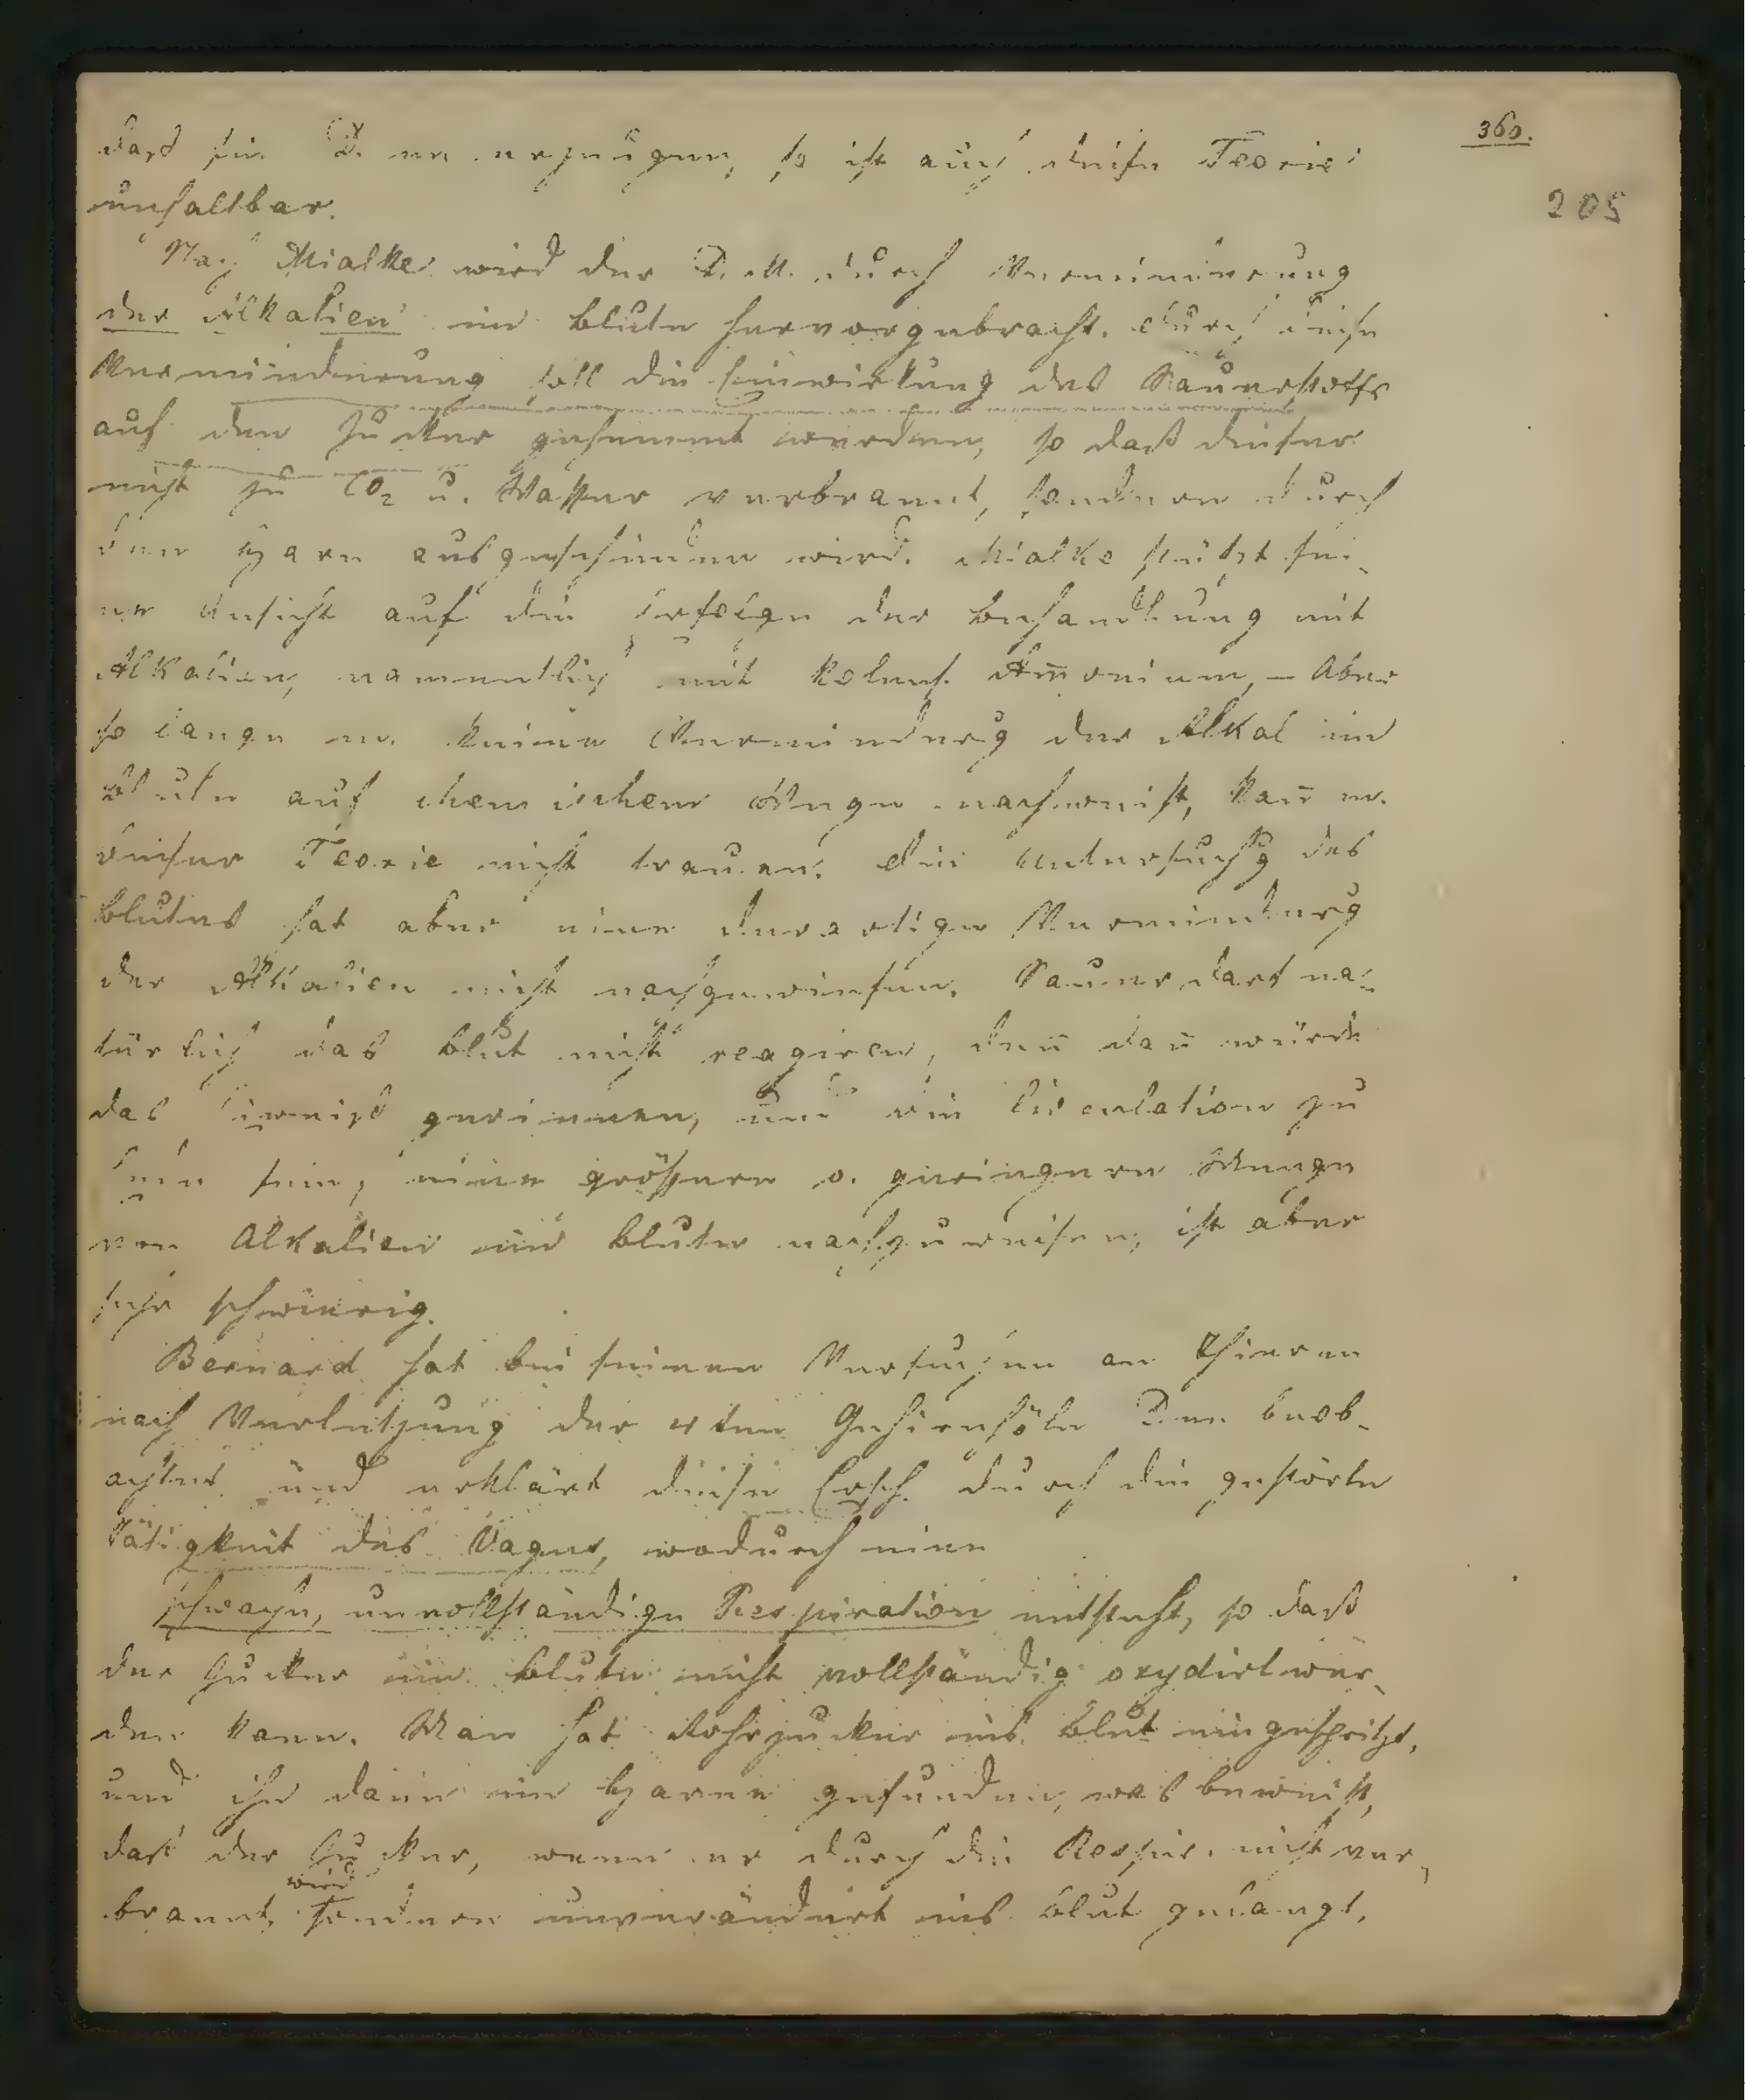 360.
205
daß sie D. m. erzeugen, so ist auch diese Teorie
unhaltbar.
Nach Mialke wird der D. M. durch Verminderung
der Alkalien im Blute hervorgebracht. Durch diese
Verminderung soll die Einwirkung des Sauerstoffs
auf den Zucker gehemmt werden, so daß dieser
nicht zu CO2 u. Wasser verbrannt, sondern durch
den Harn ausgeschieden wird. Mialke stützt sei-
ne Ansicht auf die Erfolge der Behandlung mit
Alkalien, namentlich mit kolens. Am̅onium, – Aber
so lange m. keine Verminderg der Alkal im
Blute auf chemischem Wege nachweist, kan̅ m.
dieser Teorie nicht trauen. Die Untersuchg des
Blutes hat aber eine derartige Verminderg
der Alkalien nicht nachgewiesen. Sauer darf na-
türlich das Blut nicht reagiren, den̅ dan̅ würde
das Eiweiß gerinnen, und die Circulation zu
Ende sein, eine größere o. geringere Menge
von Alkalien im Blute nachzuweisen, ist aber
sehr schwierig.
Bernard hat bei seinen Versuchen an Thieren
nach Verletzung der 4ten Gehirnhöle D. m. beob-
achtet und erklärt diese Ersch. durch die gestörte
Tätigkeit des Vagus, wodurch eine
schwache, unvollständige Respiration entsteht, so daß
der Zucker im Blute nicht vollständig oxydirt wer-
den kann. Man hat Rohrzucker ins Blut eingespritzt,
und ihn dann im Harne gefunden, was beweist,
daß der Zucker, wenn er durch die Respir. nicht ver-
brannt wird, sondern unverändert ins Blut gelangt,